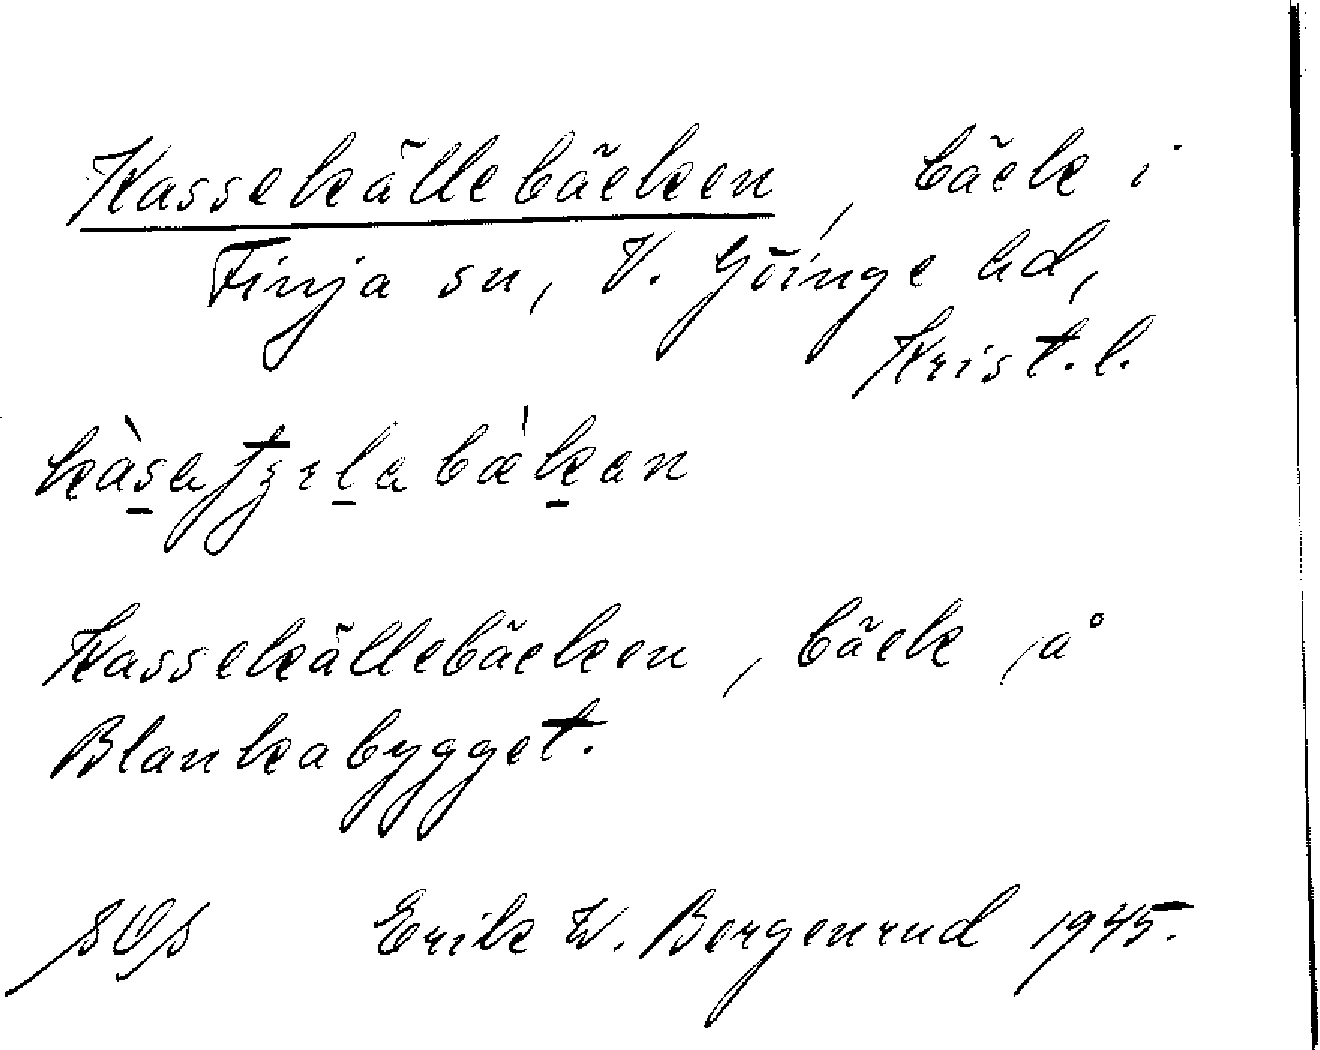 Kassekällebäcken, bäck i
Finja sn, V. Göinge hd,
Krist. l.
Kassekällebäcken, bäck på
Blankabygget.
Erik W. Borgenrud 1945.